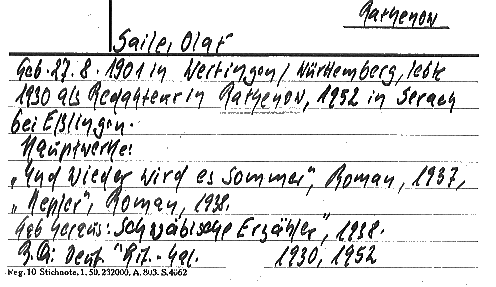 Rathenow
Saile, Olaf
Geb. 27. 8. 1901 in Weitingen/Württemberg, lebte
1930 als Redakteur in Rathenow, 1952 in Serach
bei Eßlingen.
Hauptwerke:
„Und wieder wird es Sommer", Roman, 1937,
„Kepler", Roman, 1938.
Gab heraus: „Schwäbische Erzähler", 1938.
Deut. Lit.-Kal. 1930, 1952
Reg. 10 Stichnote. 1. 50. 232000. A. 803. S. 4062